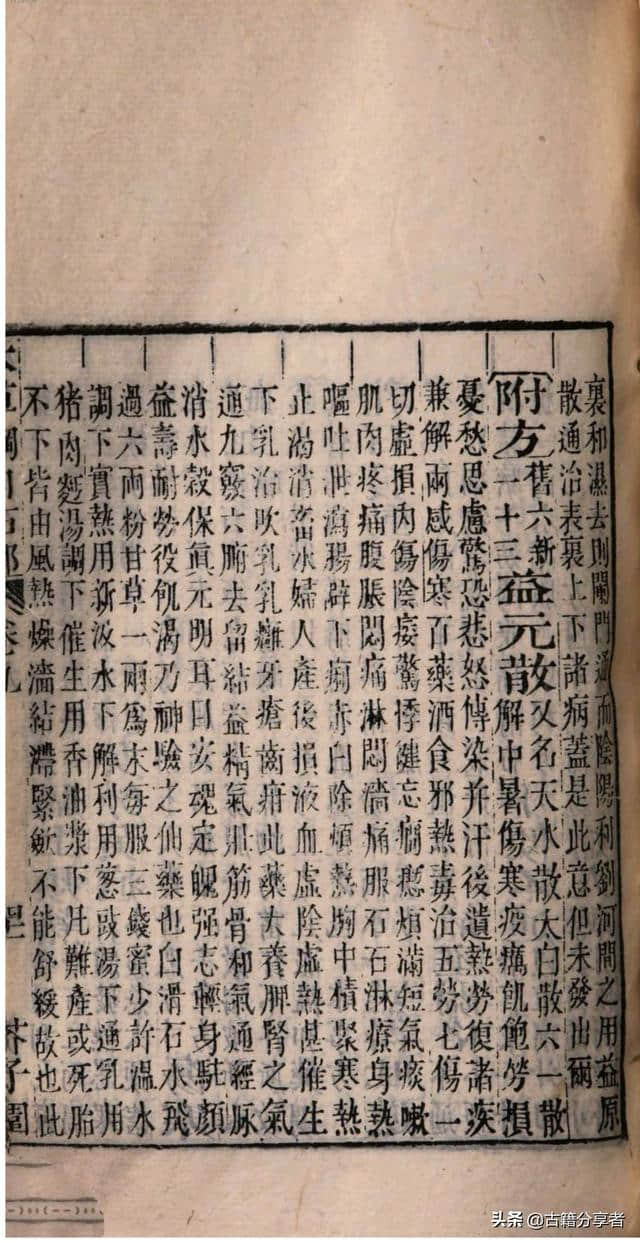 裏和濕去則闌門通而陰陽利劉河間之用益原
散通治表裏上下諸病蓋是此意但未發出爾
附方舊六新一十三益元散又名天水散太白散六一散
解中暑傷寒疫癘飢飽勞損
憂愁思慮驚恐悲怒傳染并汗後遺熱勞復諸疾
兼解兩感傷寒百藥酒食邪熱毒治五勞七傷一
切虛損內傷陰痿驚悸健忘癇瘛煩滿短氣痰嗽
肌肉疼痛腹脹悶痛淋悶濇痛服石石淋療身熱
嘔吐泄瀉腸澼下痢赤白除煩熱胸中積聚寒熱
止渴消畜水婦人產後損液血虛陰虛熱甚催生
下乳治吹乳乳癰牙瘡齒疳此藥大養脾腎之氣
通九竅六腑去留結益精氣壯筋骨和氣通經脉
消水穀保眞元明耳目安魂定魄强志輕身駐顏
益壽耐勞役飢渴乃神驗之仙藥也白滑石水飛
過六兩粉甘草一兩爲末每服三錢蜜少許温水
調下實熱用新汲水下解利用葱豉湯下通乳用
猪肉麪湯調下催生用香油漿下凡難產或死胎
不下皆由風熱燥濇結滯緊斂不能舒緩故也此
本草綱目石部 卷九 芥子園
头条 @古籍分享者